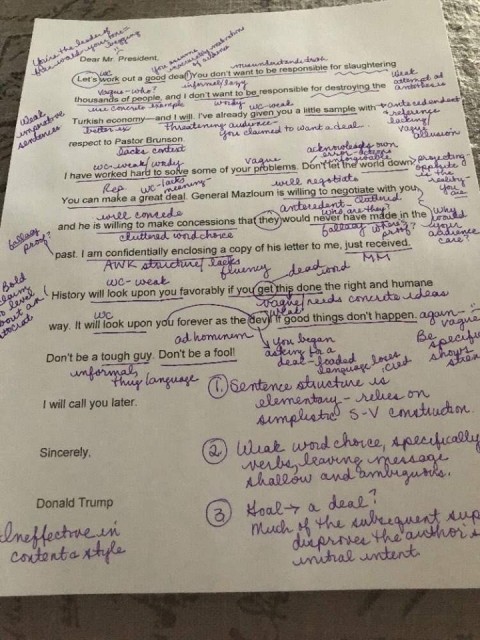 You're the leader of
Dear Mr. President,
Let's work out a good deal! You don't want to be responsible for slaughtering
wc
misunderstands
Vague - who?
informal/lazy
thousands of people, and I don't want to be responsible for destroying the
Weak
attempt at
antithesis
use concrete example
wordy
wc-weak
Turkish economy—and I will. I've already given you a little sample with
antecedent
reference
lacking/
vague
allusion
Weak
imperative
sentences
better ex
Threatening audience -
you claimed to want a deal.
respect to Pastor Brunson.
lacks context
acknowledges own
wc-weak/wordy
vague
I have worked hard to solve some of your problems. Don't let the world down.
projecting
opposite
is the
reality
Rep
wc-lacks
meaning
will negotiate
You can make a great deal. General Mazloum is willing to negotiate with you,
will concede
antecedent
who are they?
and he is willing to make concessions that they would never have made in the
cluttered word choice
fallacy
proof?
why would
your
audience
care?
fallacy
proof?
past. I am confidentially enclosing a copy of his letter to me, just received.
AWK structure/lacks
fluency
dead word
MM
Bold
claim
wc-weak
History will look upon you favorably if you get this done the right and humane
vague/needs concrete ideas
wc
what?
way. It will look upon you forever as the devil if good things don't happen.
again -
vague
Be specific
shows
ad hominem
you began
asking for a
deal - loaded
language loses
Don't be a tough guy. Don't be a fool!
informal,
thug language
I will call you later.
① Sentence structure is
elementary - relies on
simplistic S-V construction.
Sincerely,
② Weak word choice, specifically
verbs, leaving message
shallow and ambiguous.
Donald Trump
③ Goal → a deal?
Much of the subsequent
disproves the author's
initial intent
Ineffective in
content & style